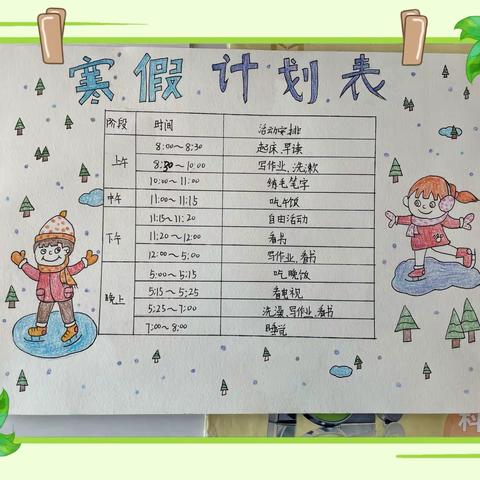 寒假计划表
阶段 时间 活动安排
上午 8:00~8:30 起床、早读
8:30~10:00 写作业、洗漱
10:00~11:00 练毛笔字
中午 11:00~11:15 吃午饭
下午 11:15~11:20 自由活动
11:20~12:00 看书
12:00~5:00 写作业、看书
晚上 5:00~5:15 吃晚饭
5:15~5:25 看电视
5:25~7:00 洗澡、写作业、看书
7:00~8:00 睡觉